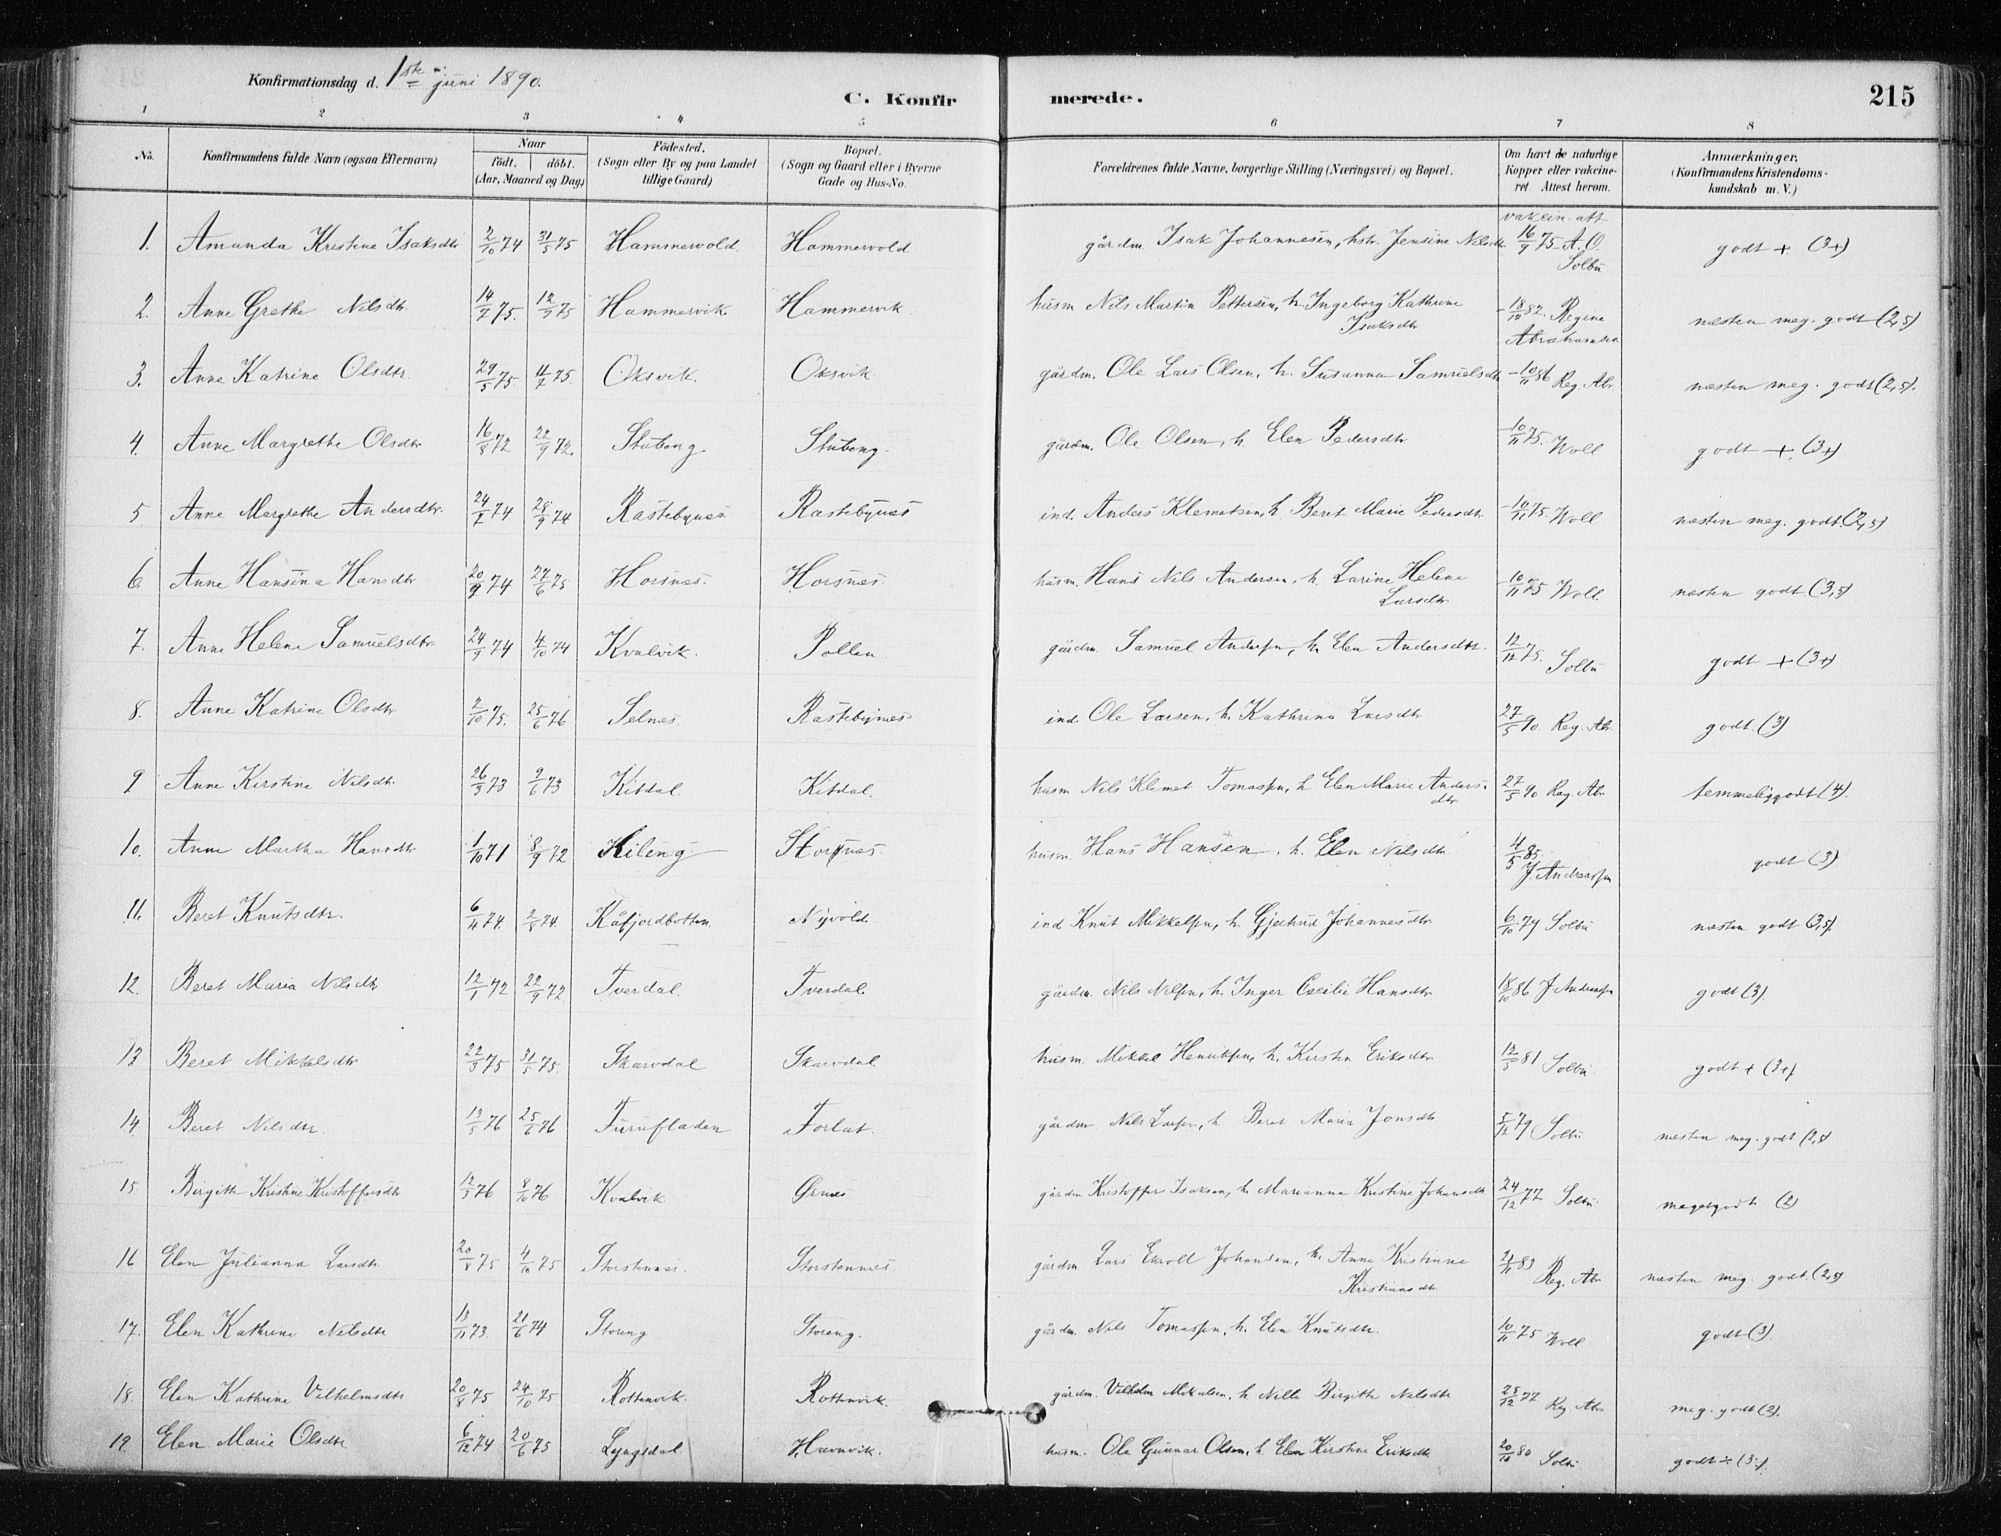 Konfirmationsdag d. 1ste juni 1890.
C. Konfirmerede. 215
1 2 3 4 5 6 7 8
No. Konfirmandens fulde Navn (ogsaa Efternavn) Naar født. døbt. (Aar, Maaned og Dag) Fødested. (Sogn eller By og paa Landet tillige Gaard) Bopæl. (Sogn og Gaard eller i Byerne Gade og Hus-No. Forældrenes fulde Navne, borgerlige Stilling (Næringsvei) og Bopæl. Om havt de naturlige Kopper eller vakcineret Attest herom. Anmærkninger, (Konfirmandens Kristendomskundskab m. V.)
1. Amanda Kristine Isaksdtr 2/10 74 31/5 75 Hammervold Hammervold gårdm. Isak Johannesen, hstr. Jensine Nilsdtr vakcin. att 16/9 75 A.O. Solbu godt + (3+)
2. Anne Grethe Nilsdtr 14/7 75. 12/9 75 Hammervik Hammervik husm Nils Martin Pettersen, h. Ingeborg Kathrine Isaksdtr 18/12 82. Regine Abrahamsen næsten meg. godt (2,5)
3. Anne Katrine Olsdtr. 29/5 75 11/7 75 Oksvik. Oksvik gårdm. Ole Lars Olsen, h. Susanna Samuelsdtr 10/11 86 Reg. Abr næsten meg. godt (2,5).
4. Anne Margrethe Olsdtr 16/8 72 22/9 72. Stubeng Stubeng. gårdm. Ole Olsen, h. Elen Pedersdtr 10/11 75. Woll godt + (3+)
5 Anne Margrethe Andersdtr. 24/7 74 28/9 74 Rastebynes Rastebynes ind. Anders Klemetsen, h. Beret Marie Pedersdtr 10/11 75. Woll næsten meg. godt. (2,5)
6 Anne Hansina Hansdtr 20/9 74 27/6 75 Horsnes. Horsnes husm. Hans Nils Andersen, h. Larine Helene Larsdtr. 10/11 75 Woll. næsten godt (3,5)
7. Anne Helene Samuelsdtr 24/9 74 4/10 74 Kvalvik. Pollen gårdm Samuel Andersen, h. Elen Andersdtr. 12/12 75. Solbu godt + (3+)
8. Anne Katrine Olsdtr 2/10 75. 25/6 76 Selnes. Rastebynes ind. Ole Larsen, h. Kathrina Larsdtr 27/5 90. Reg. Abr. godt. (3)
9 Anne Kirstine Nilsdtr. 26/3 73 2/6 73 Kitdal. Kitdal. husm Nils Klemet Tomassen, h Elen Marie Andersdtr 27/5 90 Reg. Abr temmeliggodt (4).
10. Anne Martha Hansdtr 1/10 71 8/9 72 Kileng Storsnes. husm. Hans Hansen, h. Elen Nilsdtr 4/5 85. J. Anderssen godt (3)
11. Beret Knutsdtr. 6/4 74. 2/8 74. Kåfjordbotten Nyvold. ind Knut Mikkelsen, h. Gjertrud Johannesdtr 6/10 79 Solbu næsten godt (3,5).
12. Beret Maria Nilsdtr 12/1 72 22/9 72. Tverdal. Tverdal. gårdm. Nils Nilsen, h. Inger Cecilie Hansdtr 18/10 86 J. Anderssen godt (3).
13 Beret Mikkelsdtr 22/3 75 31/5 75. Skarvdal Skarvdal husm. Mikkel Henriksen, h. Kirsten Eriksdtr 12/5 81 Solbu godt + (3+)
14. Beret Nilsdtr. 13/5 76 25/6 76 Furufladen Forlat. gårdm Nils Larsen, h Beret Maria Jonsdtr 5/12 79 Solbu næsten meg. godt (2,5)
15. Birgitte Kristine Kristoffersdtr 12/5 76 8/10 76 Kvalvik Ørnes gårdm Kristoffer Isaksen, h. Marianna Kristine Johansdtr 24/12 77 Solbu megetgodt (2)
16 Elen Julianna Larsdtr. 20/8 75 4/10 75 Storstennes. Storstennes gårdm Lars Johansen, h. Anne Kristianna Kristiansdtr. 21/11 83 Reg. Abr næsten meg. godt. (2,5)
17. Elen Kathrine Nilsdtr 13/11 73. 21/6 74 Storeng Storeng. gårdm. Nils Tomassen, h. Elen Knutsdtr. 10/11 75 Woll godt (3)
18. Elen Kathrine Vilhelmsdtr 20/8 75 24/10 75 Rottenvik. Rottenvik. gårdm. Vilhelm Mikalsen, h Nella Birgitte Nilsdtr 28/12 77 Reg. Abr. meg. godt (2).
19. Elen Marie Olsdtr 6/12 74 20/6 75 Lyngsdal Havnvik. husm. Ole Gunnar Olsen, h. Elen Kirstine Eriksdtr 20/10 80 Solbu godt ÷ (3÷).